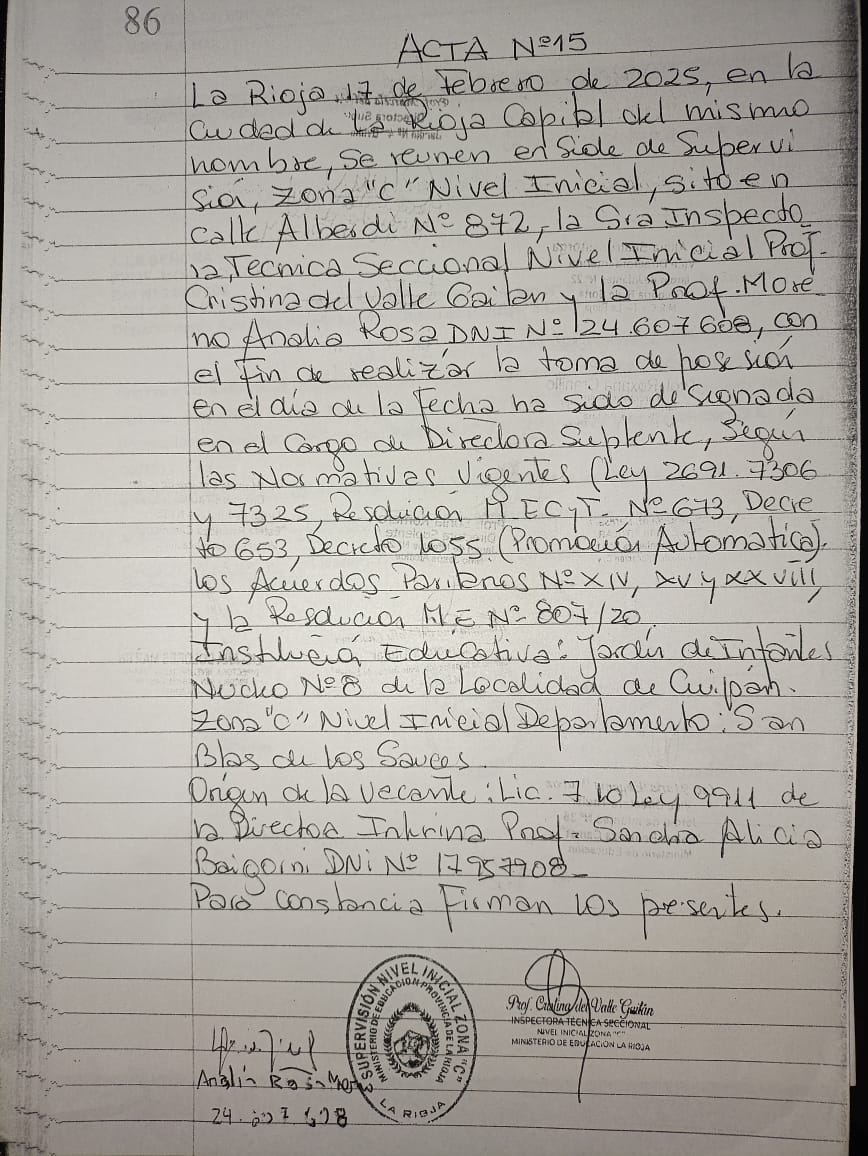 86
ACTA Nº15
La Rioja, 17 de febrero de 2025, en la
Ciudad de La Rioja Capital del mismo
nombre, se reunen en Side de Supervi
sión, Zona "C" Nivel Inicial, sito en
calle Alberdi Nº 872, la Sra Inspecto
ra, Tecnica Seccional Nivel Inicial Prof.
Cristina del Valle Gaitan y la Prof. More
no Analia Rosa DNI Nº 24.607608, con
el fin de realizar la toma de posesión
en el día de la fecha ha sido designada
en el Cargo de Directora Suplente, Según
las Normativas Vigentes (Ley 2691. 7306
y 7325, Resolución M ECyT. Nº 673, Decre
to 653, Decreto 1055. (Promoción Automatica).
los Acuerdos Paritarios Nº XIV, XV y XXVIII,
y la Resolución M.E Nº 807/20.
Institución Educativa: Jardín de Infantes
Nucleo Nº 8 de la Localidad de Cuipán.
Zona "C" Nivel Inicial Departamento: San
Blas de los Sauces.
Origen de la vacante: Lic. 7 10 Ley 9911 de
la Directora Interina Prof. Sandra Alicia
Baigorri DNI Nº 17957908_
Para constancia Firman los presentes.
SUPERVISIÓN NIVEL INICIAL ZONA "C"
MINISTERIO DE EDUCACION-PROVINCIA DE LA RIOJA
LA RIOJA
Prof. Cristina del Valle Gaitán
INSPECTORA TÉCNICA SECCIONAL
NIVEL INICIAL ZONA "C"
MINISTERIO DE EDUCACIÓN LA RIOJA
Analia Rosa
24.607608